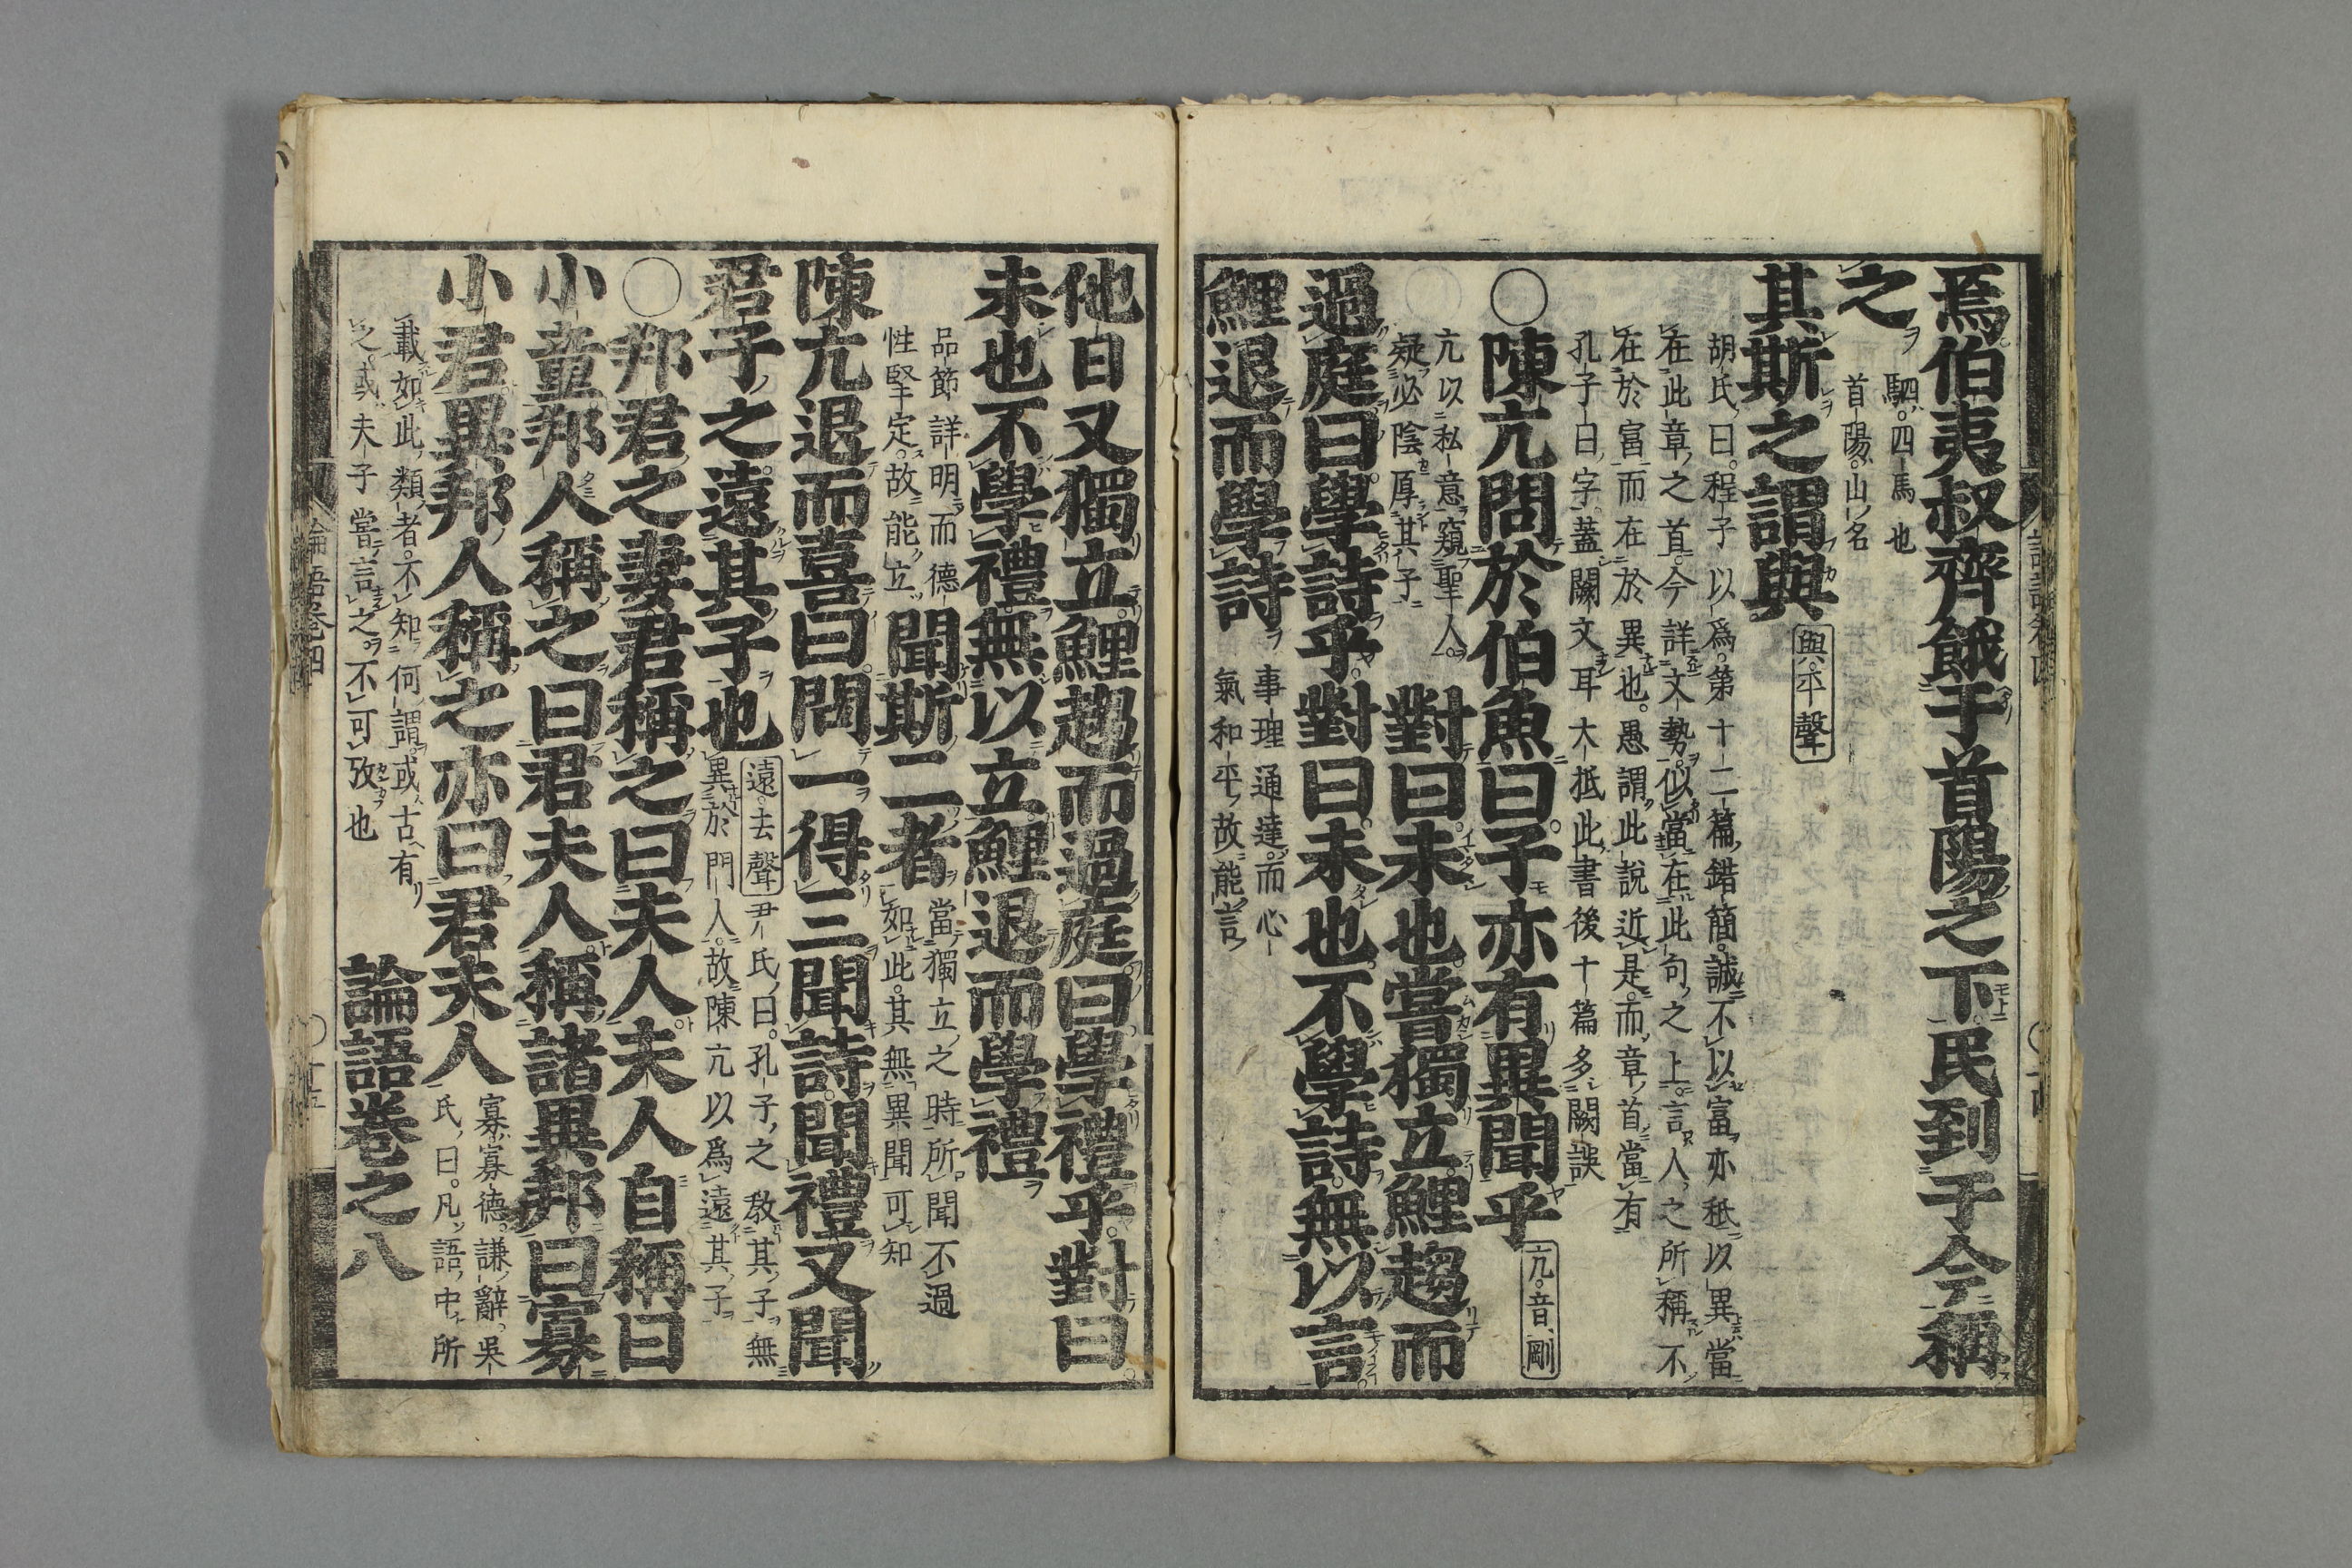 焉伯夷叔齊餓于首陽之下民到于今稱
之
駟四馬也
首陽山名
其斯之謂與
與平聲
胡氏曰程子以爲第十二篇錯簡誠不以富亦秖以異當
在此章之首今詳文勢似當在此句之上言人之所稱不
在於富而在於異也愚謂此說近是而章首當有
孔子曰字蓋闕文耳大抵此書後十篇多闕誤
○陳亢問於伯魚曰子亦有異聞乎
亢音剛
亢以私意窺聖人
疑必陰厚其子
對曰未也嘗獨立鯉趨而
過庭曰學詩乎對曰未也不學詩無以言
鯉退而學詩
事理通達而心
氣和平故能言
他日又獨立鯉趨而過庭曰學禮乎對曰
未也不學禮無以立鯉退而學禮
品節詳明而德
性堅定故能立
聞斯二者
當獨立之時所聞不過
如此其無異聞可知
陳亢退而喜曰問一得三聞詩聞禮又聞
君子之遠其子也
遠去聲
尹氏曰孔子之敎其子無
異於門人故陳亢以爲遠其子
○邦君之妻君稱之曰夫人夫人自稱曰
小童邦人稱之曰君夫人稱諸異邦曰寡
小君異邦人稱之亦曰君夫人
寡寡德謙辭吳
氏曰凡語中所
載如此類者不知何謂或古有
之或夫子嘗言之不可攷也
論語卷之八
論語卷四